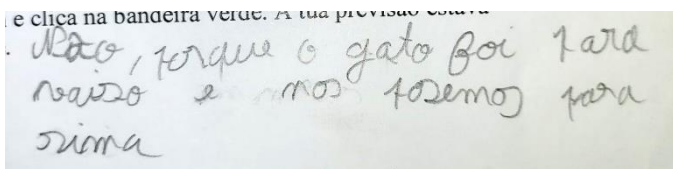 e clica na bandeira verde. A tua previsão estava
. Não, porque o gato foi para
baixo e nos posemos para
sima